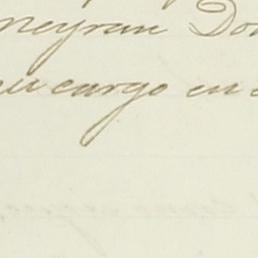 neyran Don
su cargo en